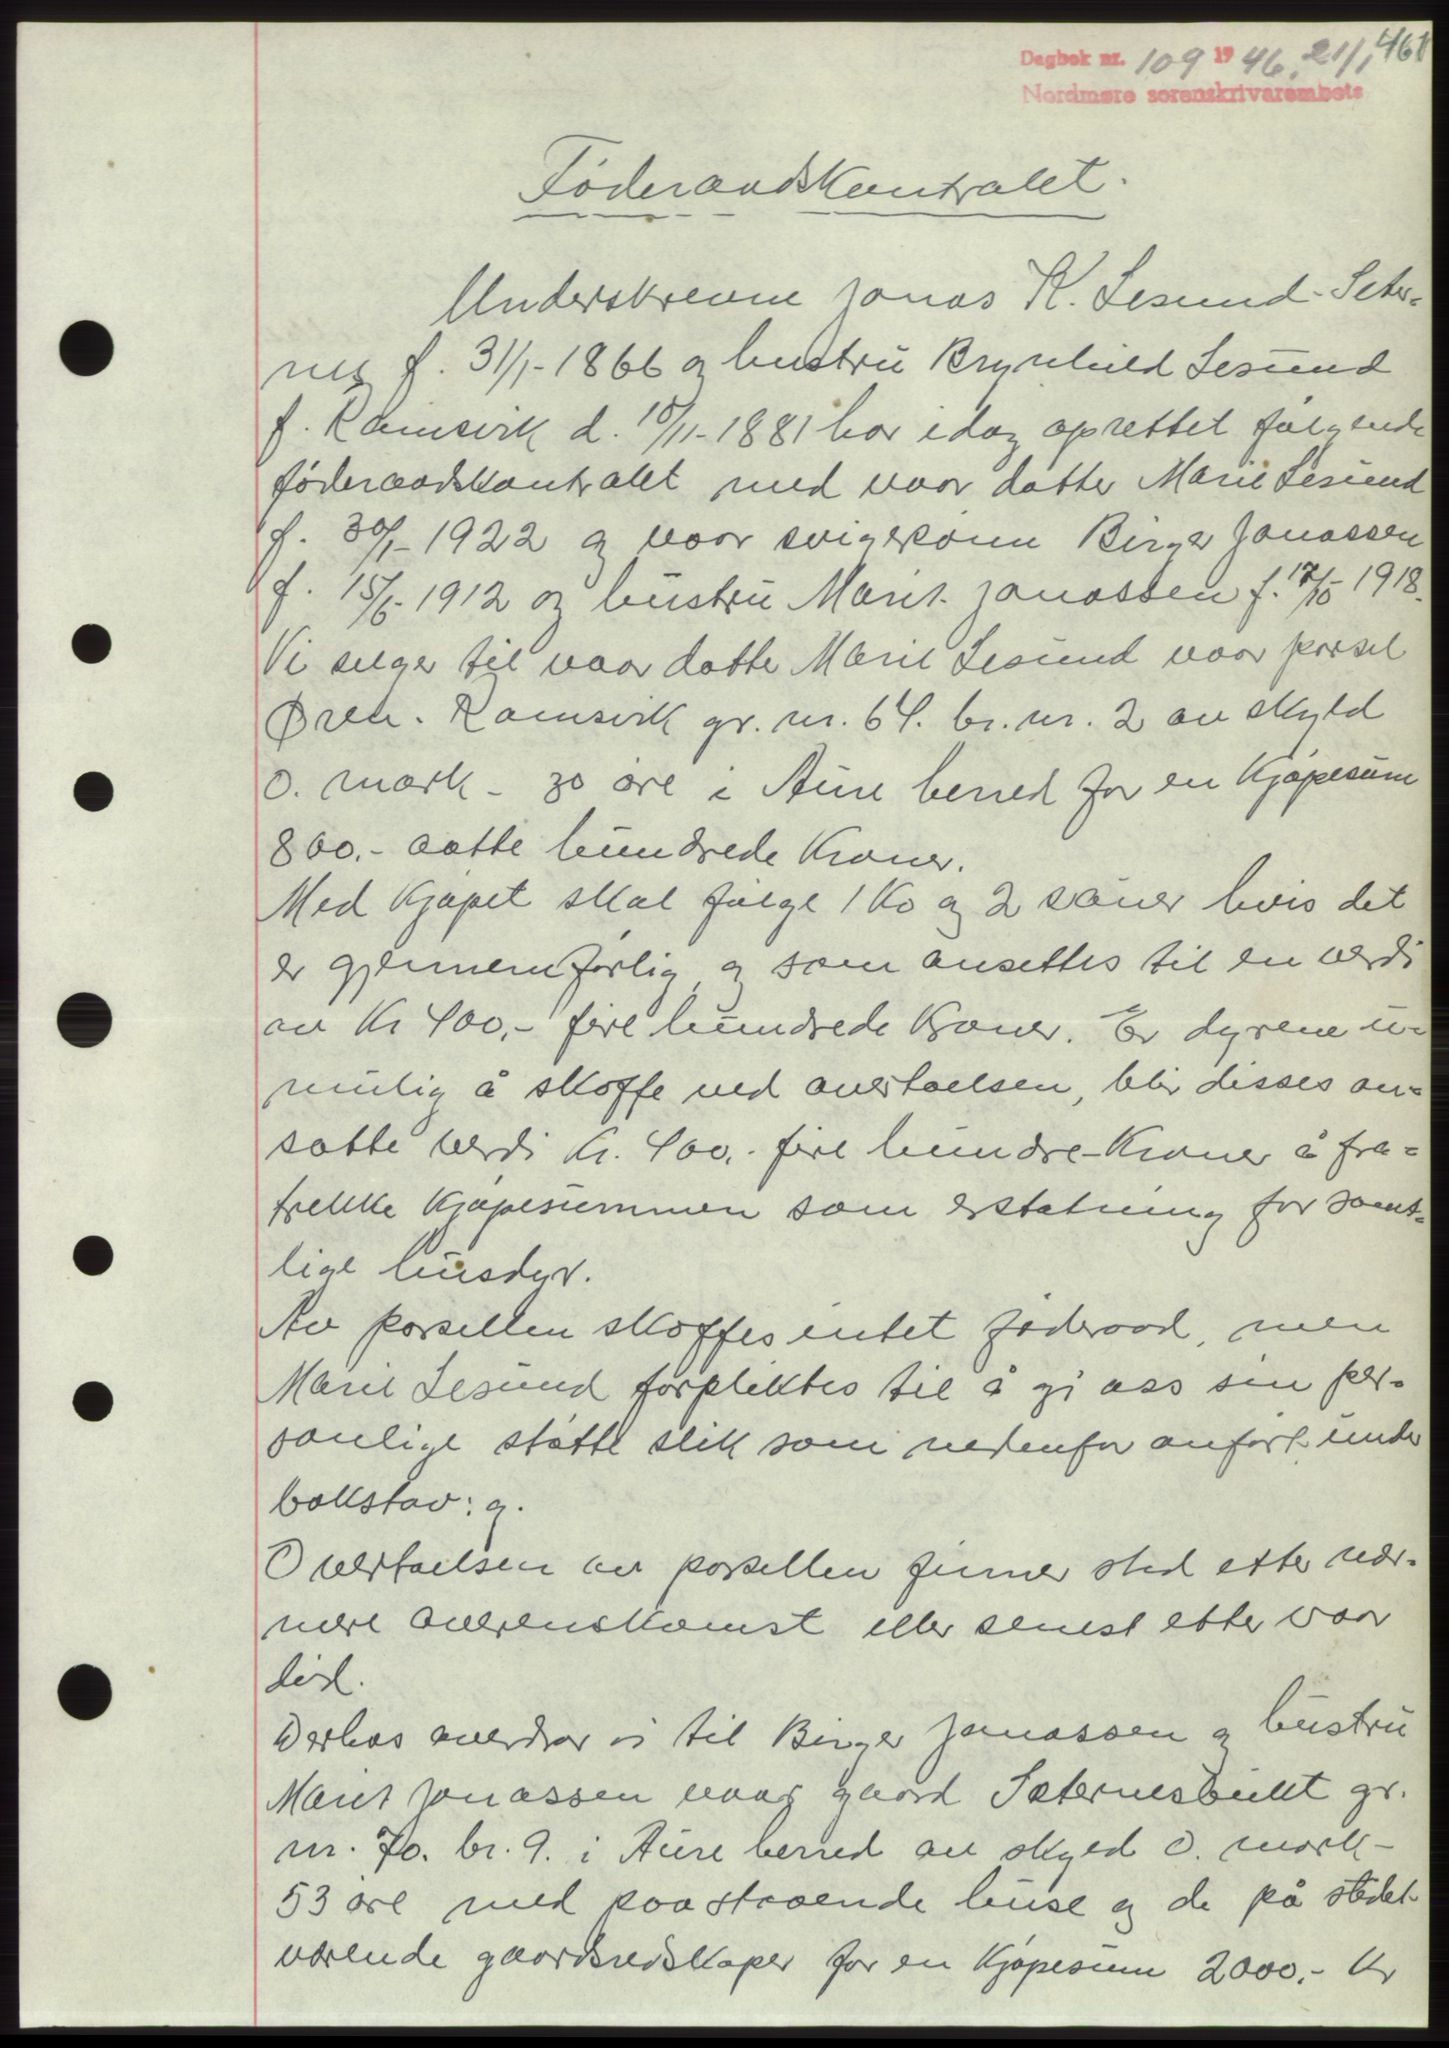 461
Dagbok nr. 109 1946, 21/1
Nordmøre sorenskrivarembete
Føderaadskontrakt.
Underskrevne Jonas K. Lesund-Seter-
nes f. 31/1-1866 og hustru Brynhild Lesund
f. Ramsvik d. 10/11-1881 har idag oprettet følgende
føderaadskontrakt med vaar datter Marie Lesund
f. 30/1-1922 og vaar svigersønn Birger Jonassen
f. 15/6-1912 og hustru Marit Jonassen f. 17/10-1918.
Vi selger til vaar datter Marie Lesund vaar parsel
Øren. Ramsvik gr. nr. 64. br. nr. 2 av skyld
0. mark - 30 øre i Aure herred for en kjøpesum
800.- aatte hundrede kroner.
Med kjøpet skal følge 1 ko og 2 sauer hvis det
er gjennemførlig, og som ansettes til en verdi
av kr 400,- fire hundrede kroner. Er dyrene u-
mulig å skaffe ved overtaelsen, blir disses an-
satte verdi kr. 400,- fire hundre-kroner å fra-
trekke kjøpesummen som erstatning for samt-
lige husdyr.
Av parsellen skaffes intet føderaad, men
Marie Lesund forpliktes til å gi oss sin per-
sonlige støtte slik som nedenfor anført under
bokstav: g.
Overtaelsen av parsellen finner sted etter nær-
mere overenskomst eller senest etter vaar
død.
Derhos overdrar vi til Birger Jonassen og hustru
Marit Jonassen vaar gaard Sæternesbukt gr.
nr. 70. br. 9. i Aure herred av skyld 0. mark-
53 øre med paastaaende huse og de på stedet
værende gaardsredskaper for en kjøpesum 2000.- kr